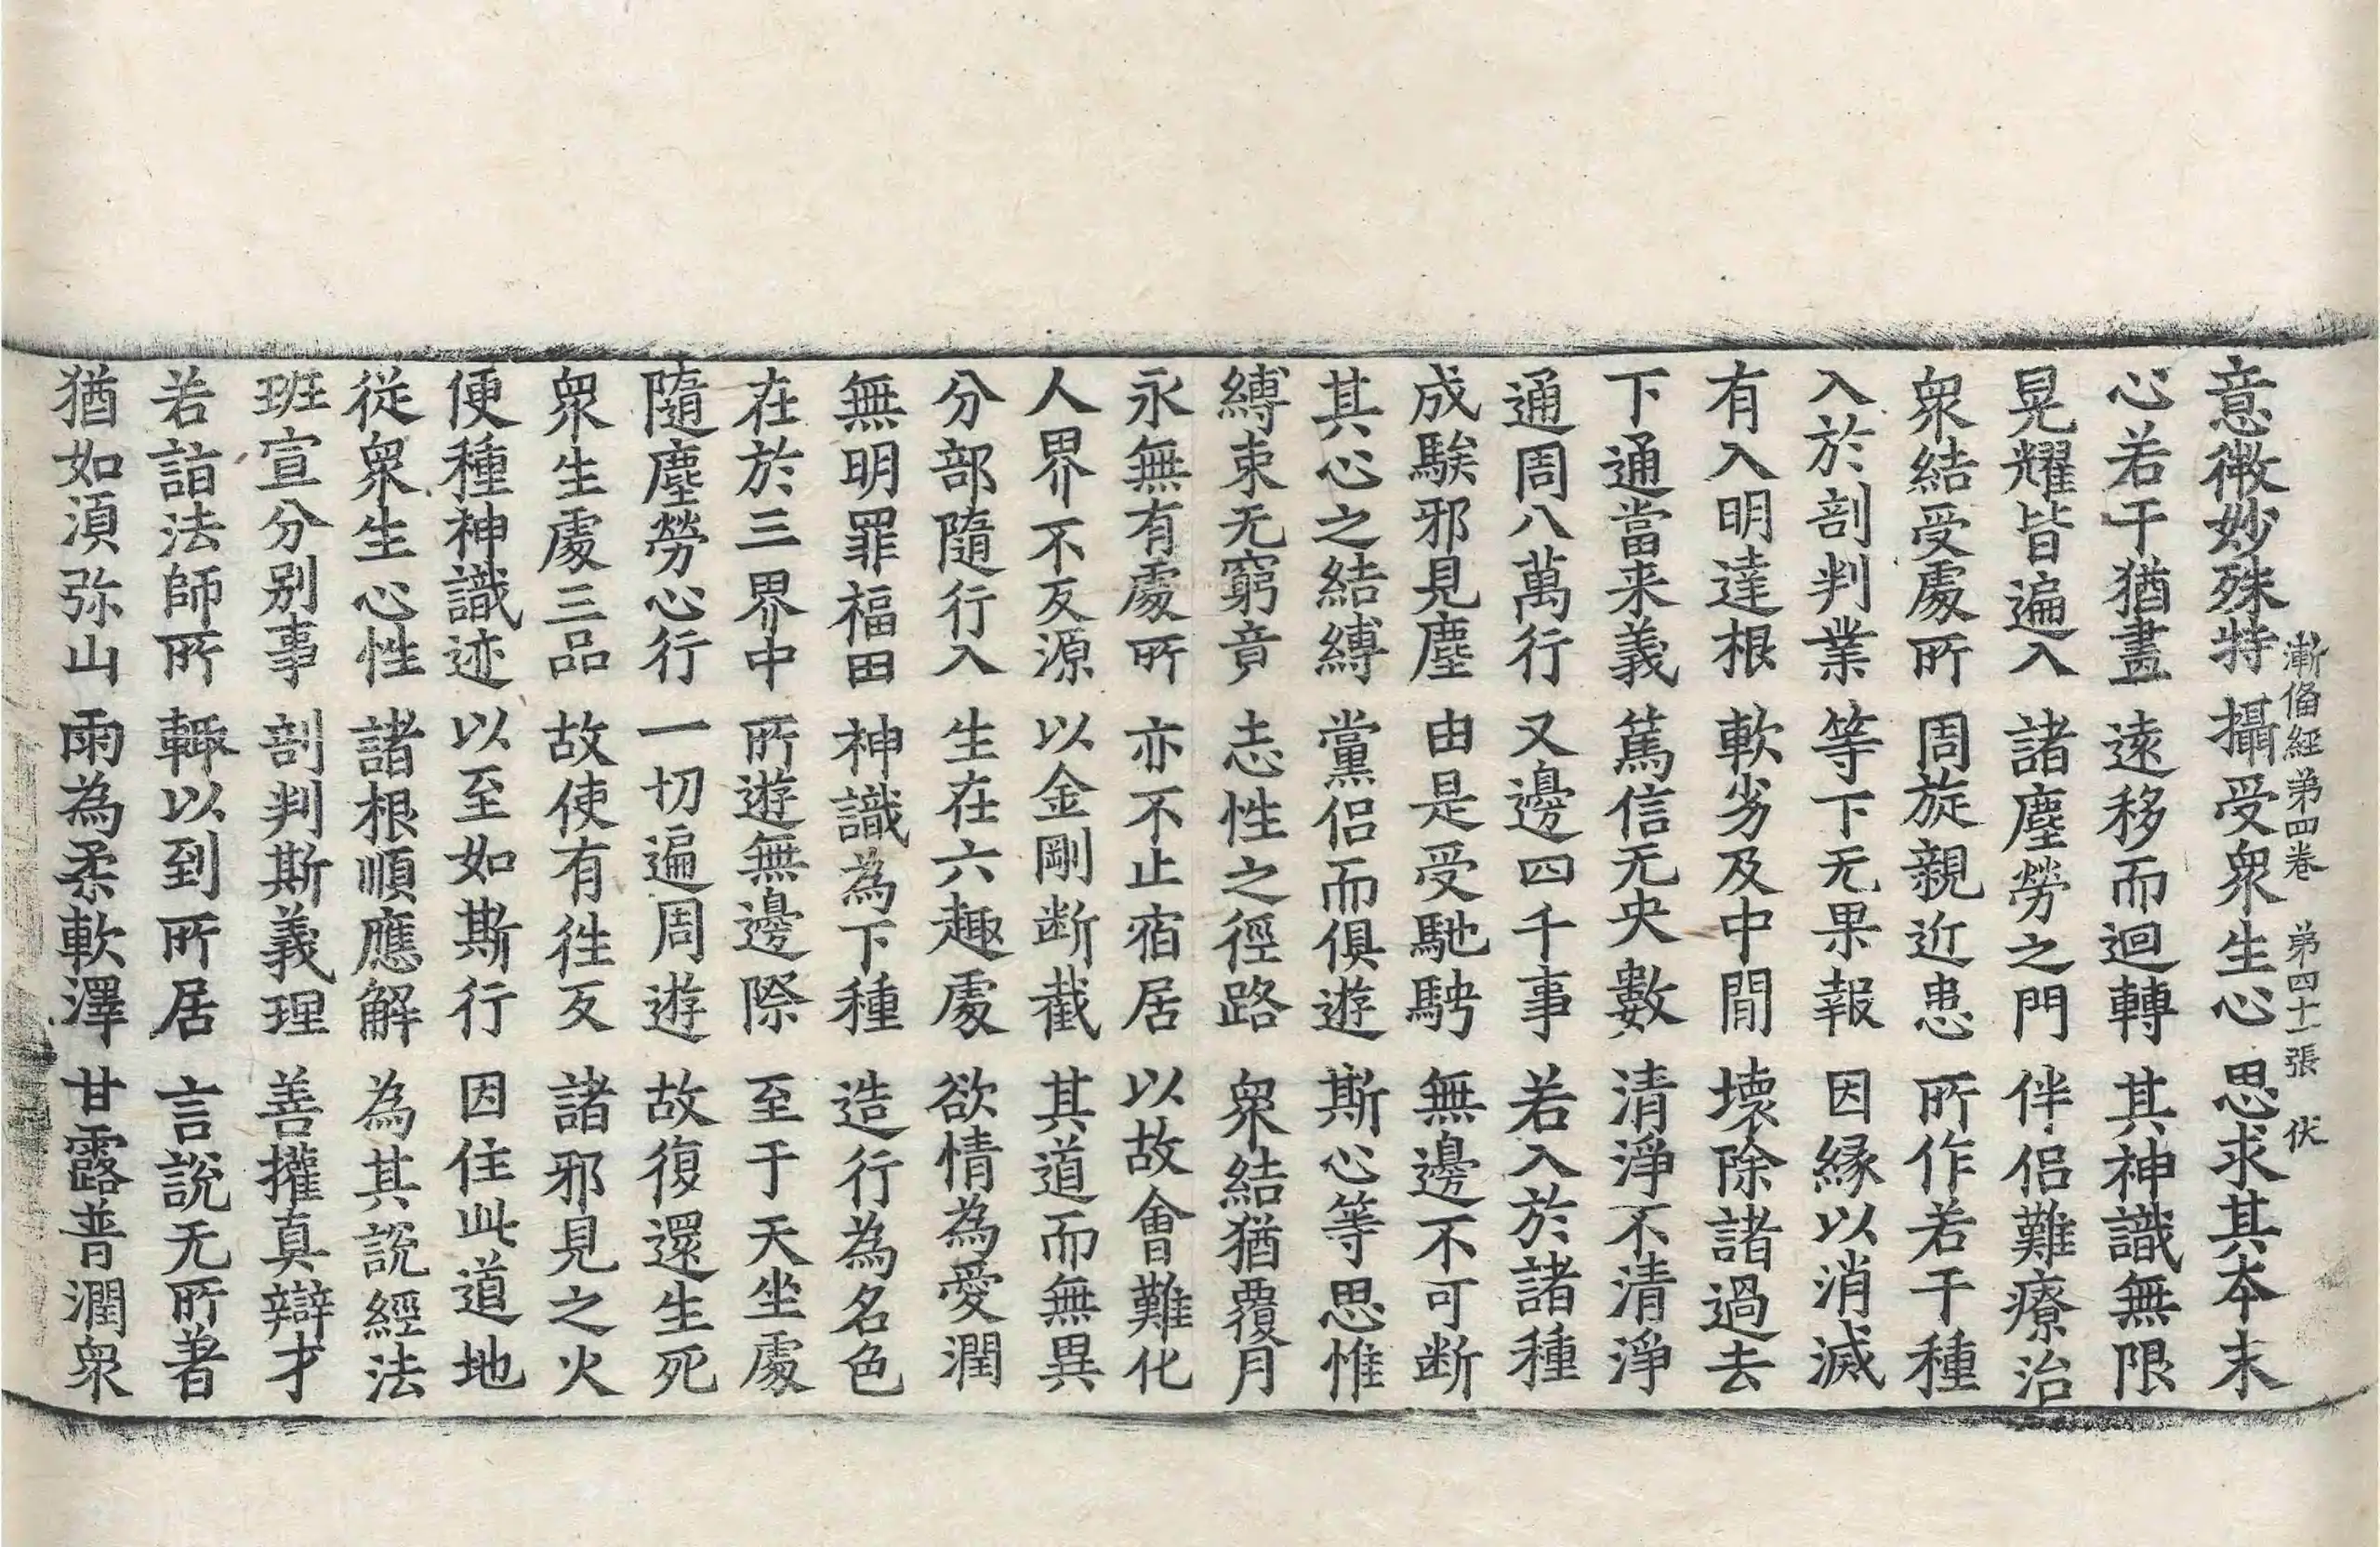 漸俻經第四卷　第四十一張　伏
意微妙殊特　攝受衆生心　思求其夲末
心若干猶畫　遠移而迴轉　其神識無限
晃耀皆遍入　諸塵勞之門　伴侣難療治
衆結受處所　周旋親近患　所作若干種
入於剖判業　等下无果報　因縁以消滅
有入明達根　軟劣及中間　壞除諸過去
下通當来義　篤信无央數　清淨不清淨
通周八萬行　又邊四千事　若入於諸種
成騃邪見塵　由是受馳騁　無邊不可断
其心之結縛　黨侣而俱遊　斯心等思惟
縛束无窮竟　志性之徑路　衆結猶覆月
永無有處所　亦不止宿居　以故會難化
人界不反源　以金剛断截　其道而無異
分部隨行入　生在六趣處　欲情為愛潤
無明罪福田　神識為下種　造行為名色
在於三界中　所遊無邊際　至于天坐處
隨塵勞心行　一切遍周遊　故復還生死
衆生處三品　故使有徃反　諸邪見之火
便種神識迹　以至如斯行　因住此道地
従衆生心性　諸根順應解　為其説經法
班宣分别事　剖判斯義理　善㩲真辯才
若詣法師所　輙以到所居　言説无所著
猶如湏弥山　雨為柔軟澤　甘露普潤衆